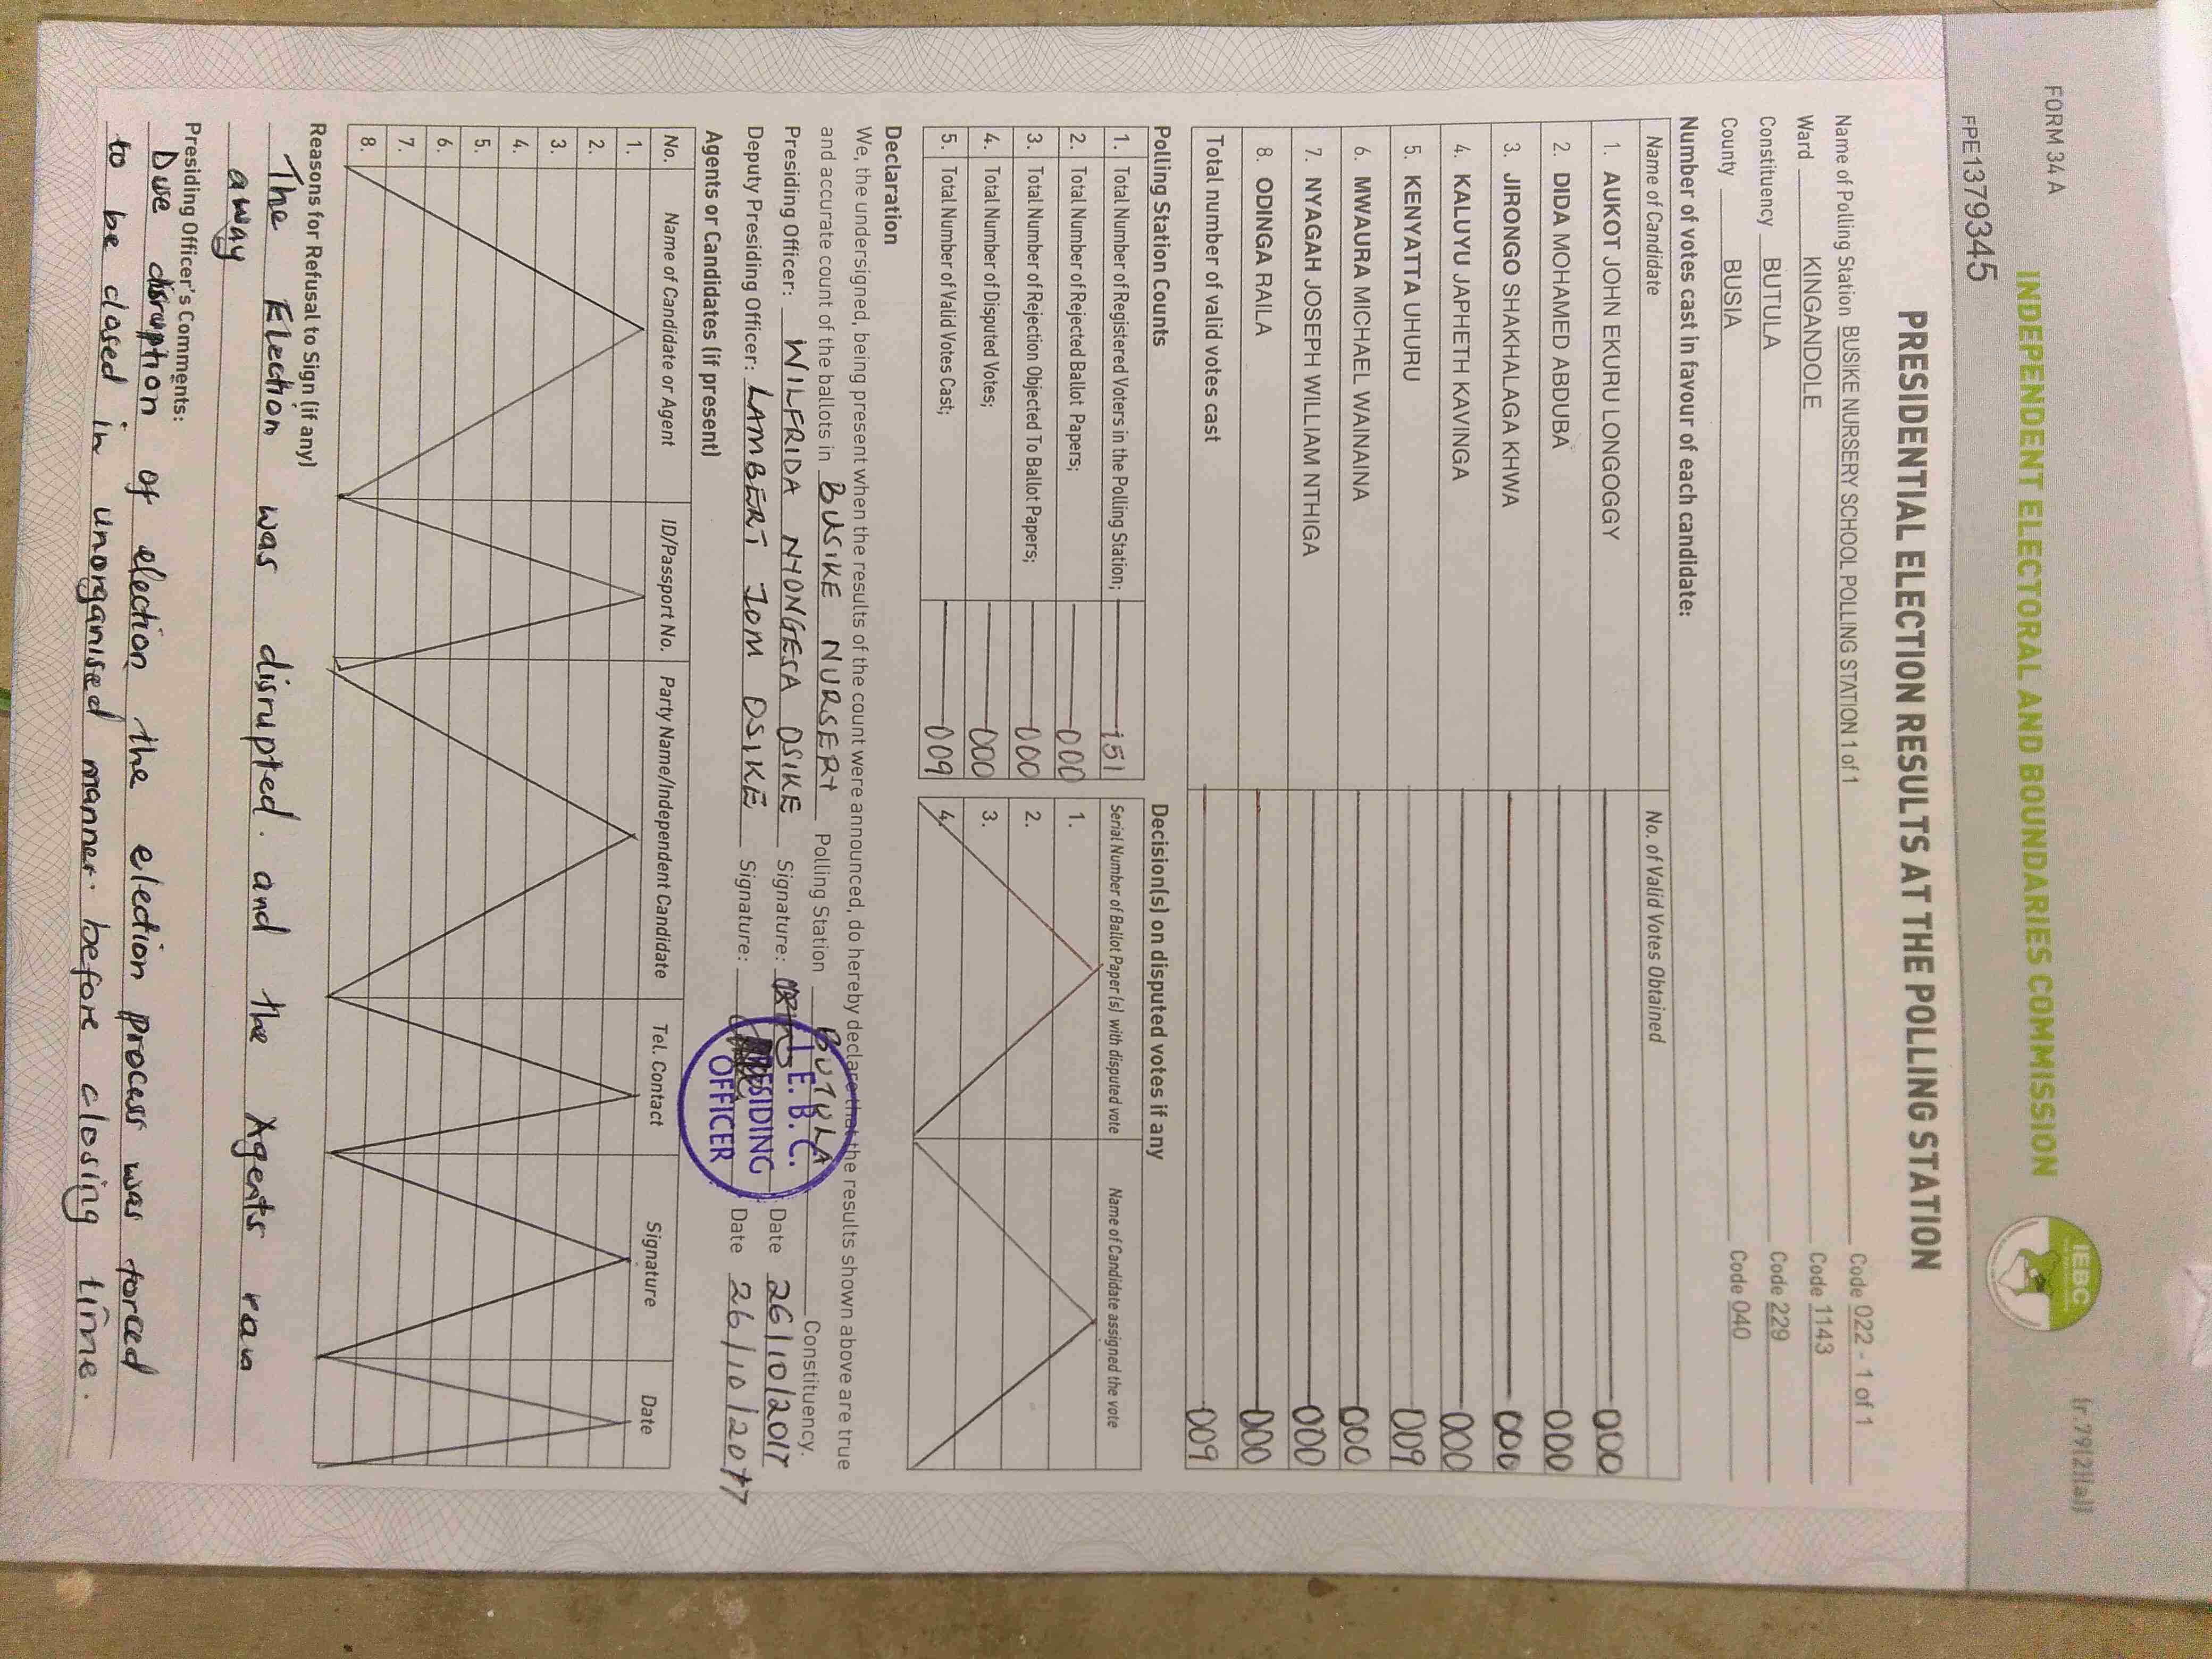 FORM 34 A
(r.79(2)(a))
INDEPENDENT ELECTORAL AND BOUNDARIES COMMISSION
IEBC
FPE1379345
PRESIDENTIAL ELECTION RESULTS AT THE POLLING STATION
Name of Polling Station BUSIKE NURSERY SCHOOL POLLING STATION 1 of 1 Code 022 - 1 of 1
Ward KINGANDOLE Code 1143
Constituency BUTULA Code 229
County BUSIA Code 040
Number of votes cast in favour of each candidate:
Name of Candidate No. of Valid Votes Obtained
1. AUKOT JOHN EKURU LONGOGGY 000
2. DIDA MOHAMED ABDUBA 000
3. JIRONGO SHAKHALAGA KHWA 000
4. KALUYU JAPHETH KAVINGA 000
5. KENYATTA UHURU 009
6. MWAURA MICHAEL WAINAINA 000
7. NYAGAH JOSEPH WILLIAM NTHIGA 000
8. ODINGA RAILA 000
Total number of valid votes cast 009
Polling Station Counts
1. Total Number of Registered Voters in the Polling Station; 151
2. Total Number of Rejected Ballot Papers; 000
3. Total Number of Rejection Objected To Ballot Papers; 000
4. Total Number of Disputed Votes; 000
5. Total Number of Valid Votes Cast; 009
Decision(s) on disputed votes if any
Serial Number of Ballot Paper (s) with disputed vote Name of Candidate assigned the vote
1.
2.
3.
4.
Declaration
We, the undersigned, being present when the results of the count were announced, do hereby declare that the results shown above are true
and accurate count of the ballots in BUSIKE NURSERY Polling Station BUTULA Constituency.
Presiding Officer: WILFRIDA NYONGESA OSIKE Signature: Date 26/10/2017
Deputy Presiding Officer: LAMBERT TOM OSIKE Signature: Date 26/10/2017
I. E. B. C.
PRESIDING
OFFICER
Agents or Candidates (if present)
No. Name of Candidate or Agent ID/Passport No. Party Name/Independent Candidate Tel. Contact Signature Date
1.
2.
3.
4.
5.
6.
7.
8.
Reasons for Refusal to Sign (if any)
The Election was disrupted. and the Agents ran
away
Presiding Officer's Comments:
Due disruption of election the election process was forced
to be closed in unorganised manner. before closing time.